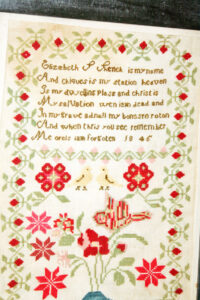 Elizabeth P French is my name
And chique is my station heaven
Is my dwelling place and christ is
My salvation when iam dead and
In my grave and all my bones are roton
And when this you see remember
Me or els iam forgoten 1846